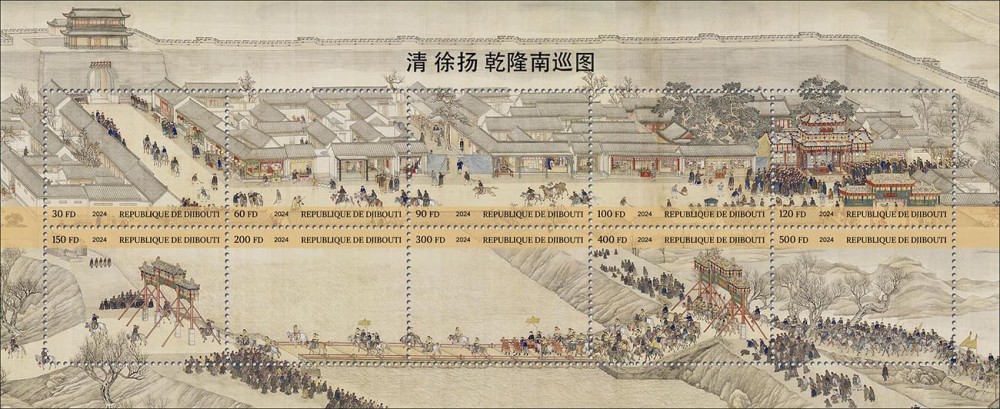 清 徐扬 乾隆南巡图
30 FD 2024 REPUBLIQUE DE DJIBOUTI
60 FD 2024 REPUBLIQUE DE DJIBOUTI
90 FD 2024 REPUBLIQUE DE DJIBOUTI
100 FD 2024 REPUBLIQUE DE DJIBOUTI
120 FD 2024 REPUBLIQUE DE DJIBOUTI
150 FD 2024 REPUBLIQUE DE DJIBOUTI
200 FD 2024 REPUBLIQUE DE DJIBOUTI
300 FD 2024 REPUBLIQUE DE DJIBOUTI
400 FD 2024 REPUBLIQUE DE DJIBOUTI
500 FD 2024 REPUBLIQUE DE DJIBOUTI